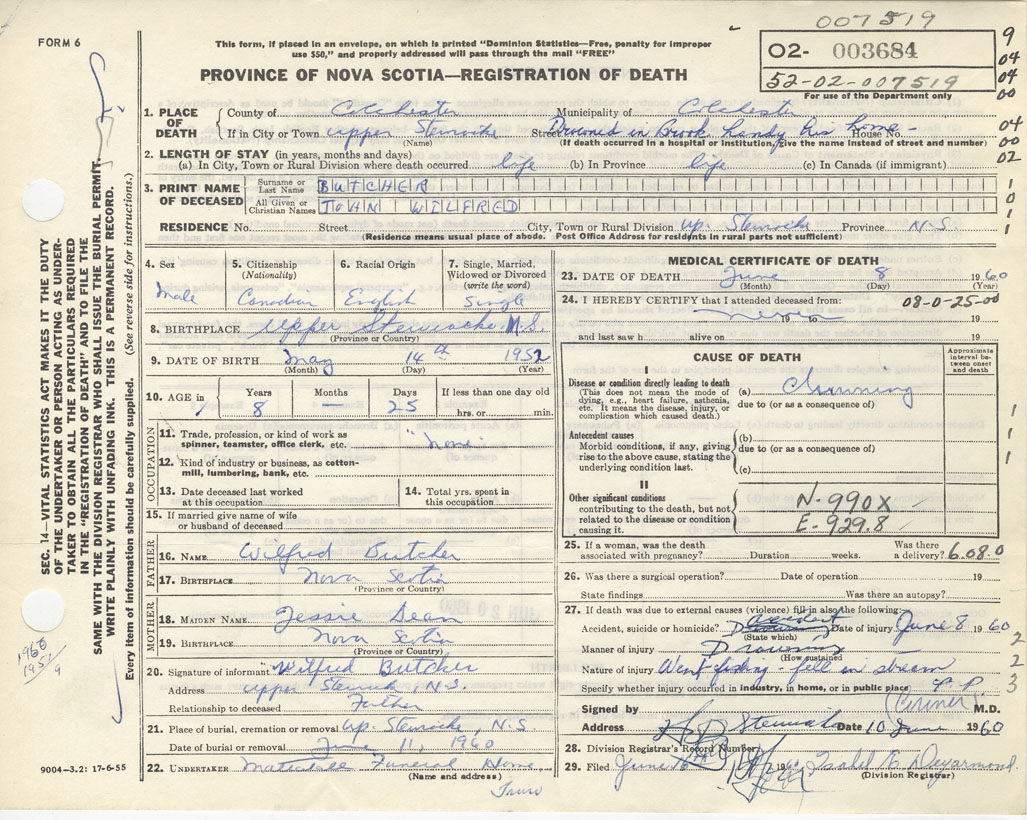 007519
FORM 6
This form, if placed in an envelope, on which is printed "Dominion Statistics—Free, penalty for improper
use $50," and properly addressed will pass through the mail "FREE"
O2- 003684
52-02-007519
For use of the Department only
PROVINCE OF NOVA SCOTIA—REGISTRATION OF DEATH
9
04
04
00
04
00
02
1
0
1
1. PLACE OF DEATH
County of Colchester Municipality of Colchester
If in City or Town Upper Stewiacke Street Drowned in Brook handy his home - House No.
(Name) (If death occurred in a hospital or institution, give the name instead of street and number)
2. LENGTH OF STAY (in years, months and days)
(a) In City, Town or Rural Division where death occurred life (b) In Province life (c) In Canada (if immigrant)
3. PRINT NAME OF DECEASED
Surname or Last Name BUTCHER
All Given or Christian Names JOHN WILFRED
RESIDENCE No. Street City, Town or Rural Division Up. Stewiacke Province N.S.
(Residence means usual place of abode. Post Office Address for residents in rural parts not sufficient)
4. Sex Male
5. Citizenship (Nationality) Canadian
6. Racial Origin English
7. Single, Married, Widowed or Divorced (write the word) Single
8. BIRTHPLACE Upper Stewiacke N.S.
(Province or Country)
9. DATE OF BIRTH May 14th 1952
(Month) (Day) (Year)
10. AGE in Years 8 Months — Days 25 If less than one day old hrs. or min.
OCCUPATION
11. Trade, profession, or kind of work as spinner, teamster, office clerk, etc. "None"
12. Kind of industry or business, as cotton-mill, lumbering, bank, etc.
13. Date deceased last worked at this occupation
14. Total yrs. spent in this occupation
15. If married give name of wife or husband of deceased
FATHER
16. NAME Wilfred Butcher
17. BIRTHPLACE Nova Scotia
(Province or Country)
MOTHER
18. MAIDEN NAME Jessie Dean
19. BIRTHPLACE Nova Scotia
(Province or Country)
20. Signature of informant Wilfred Butcher
Address Upper Stewiack, N.S.
Relationship to deceased Father
21. Place of burial, cremation or removal Up. Stewiacke, N.S.
Date of burial or removal June 11, 1960
22. UNDERTAKER Funeral Home,
(Name and address)
Truro
MEDICAL CERTIFICATE OF DEATH
23. DATE OF DEATH June 8 1960
(Month) (Day) (Year)
24. I HEREBY CERTIFY that I attended deceased from: 08-0-25-00
never 19 to 19
and last saw h alive on 19
CAUSE OF DEATH
Approximate interval between onset and death
I
Disease or condition directly leading to death
(This does not mean the mode of dying, e.g., heart failure, asthenia, etc. It means the disease, injury, or complication which caused death.)
(a)
due to (or as a consequence of)
Antecedent causes
Morbid conditions, if any, giving rise to the above cause, stating the underlying condition last.
(b)
due to (or as a consequence of)
(c)
II
Other significant conditions contributing to the death, but not related to the disease or condition causing it.
N-990X
E-929.8
1
1
1
25. If a woman, was the death associated with pregnancy? Duration weeks. Was there a delivery? 6.08.0
26. Was there a surgical operation? Date of operation 19
State findings Was there an autopsy?
27. If death was due to external causes (violence) fill in also the following:
Accident, suicide or homicide? Accident Date of injury June 8 1960
(State which)
Manner of injury Drowning
(How sustained)
Nature of injury Went fishing fell in stream
Specify whether injury occurred in industry, in home, or in public place P.P.
2
2
3
Signed by (Coroner) M.D.
Address Date 10 June 1960
28. Division Registrar's Record Number
29. Filed June 19 Isabel
(Division Registrar)
SEC. 14—VITAL STATISTICS ACT MAKES IT THE DUTY
OF THE UNDERTAKER OR PERSON ACTING AS UNDER-
TAKER TO OBTAIN ALL THE PARTICULARS REQUIRED
IN THE "REGISTRATION OF DEATH" AND TO FILE THE
SAME WITH THE DIVISION REGISTRAR WHO SHALL ISSUE THE BURIAL PERMIT.
WRITE PLAINLY WITH UNFADING INK. THIS IS A PERMANENT RECORD.
Every item of information should be carefully supplied. (See reverse side for instructions.)
9004-3.2: 17-6-55